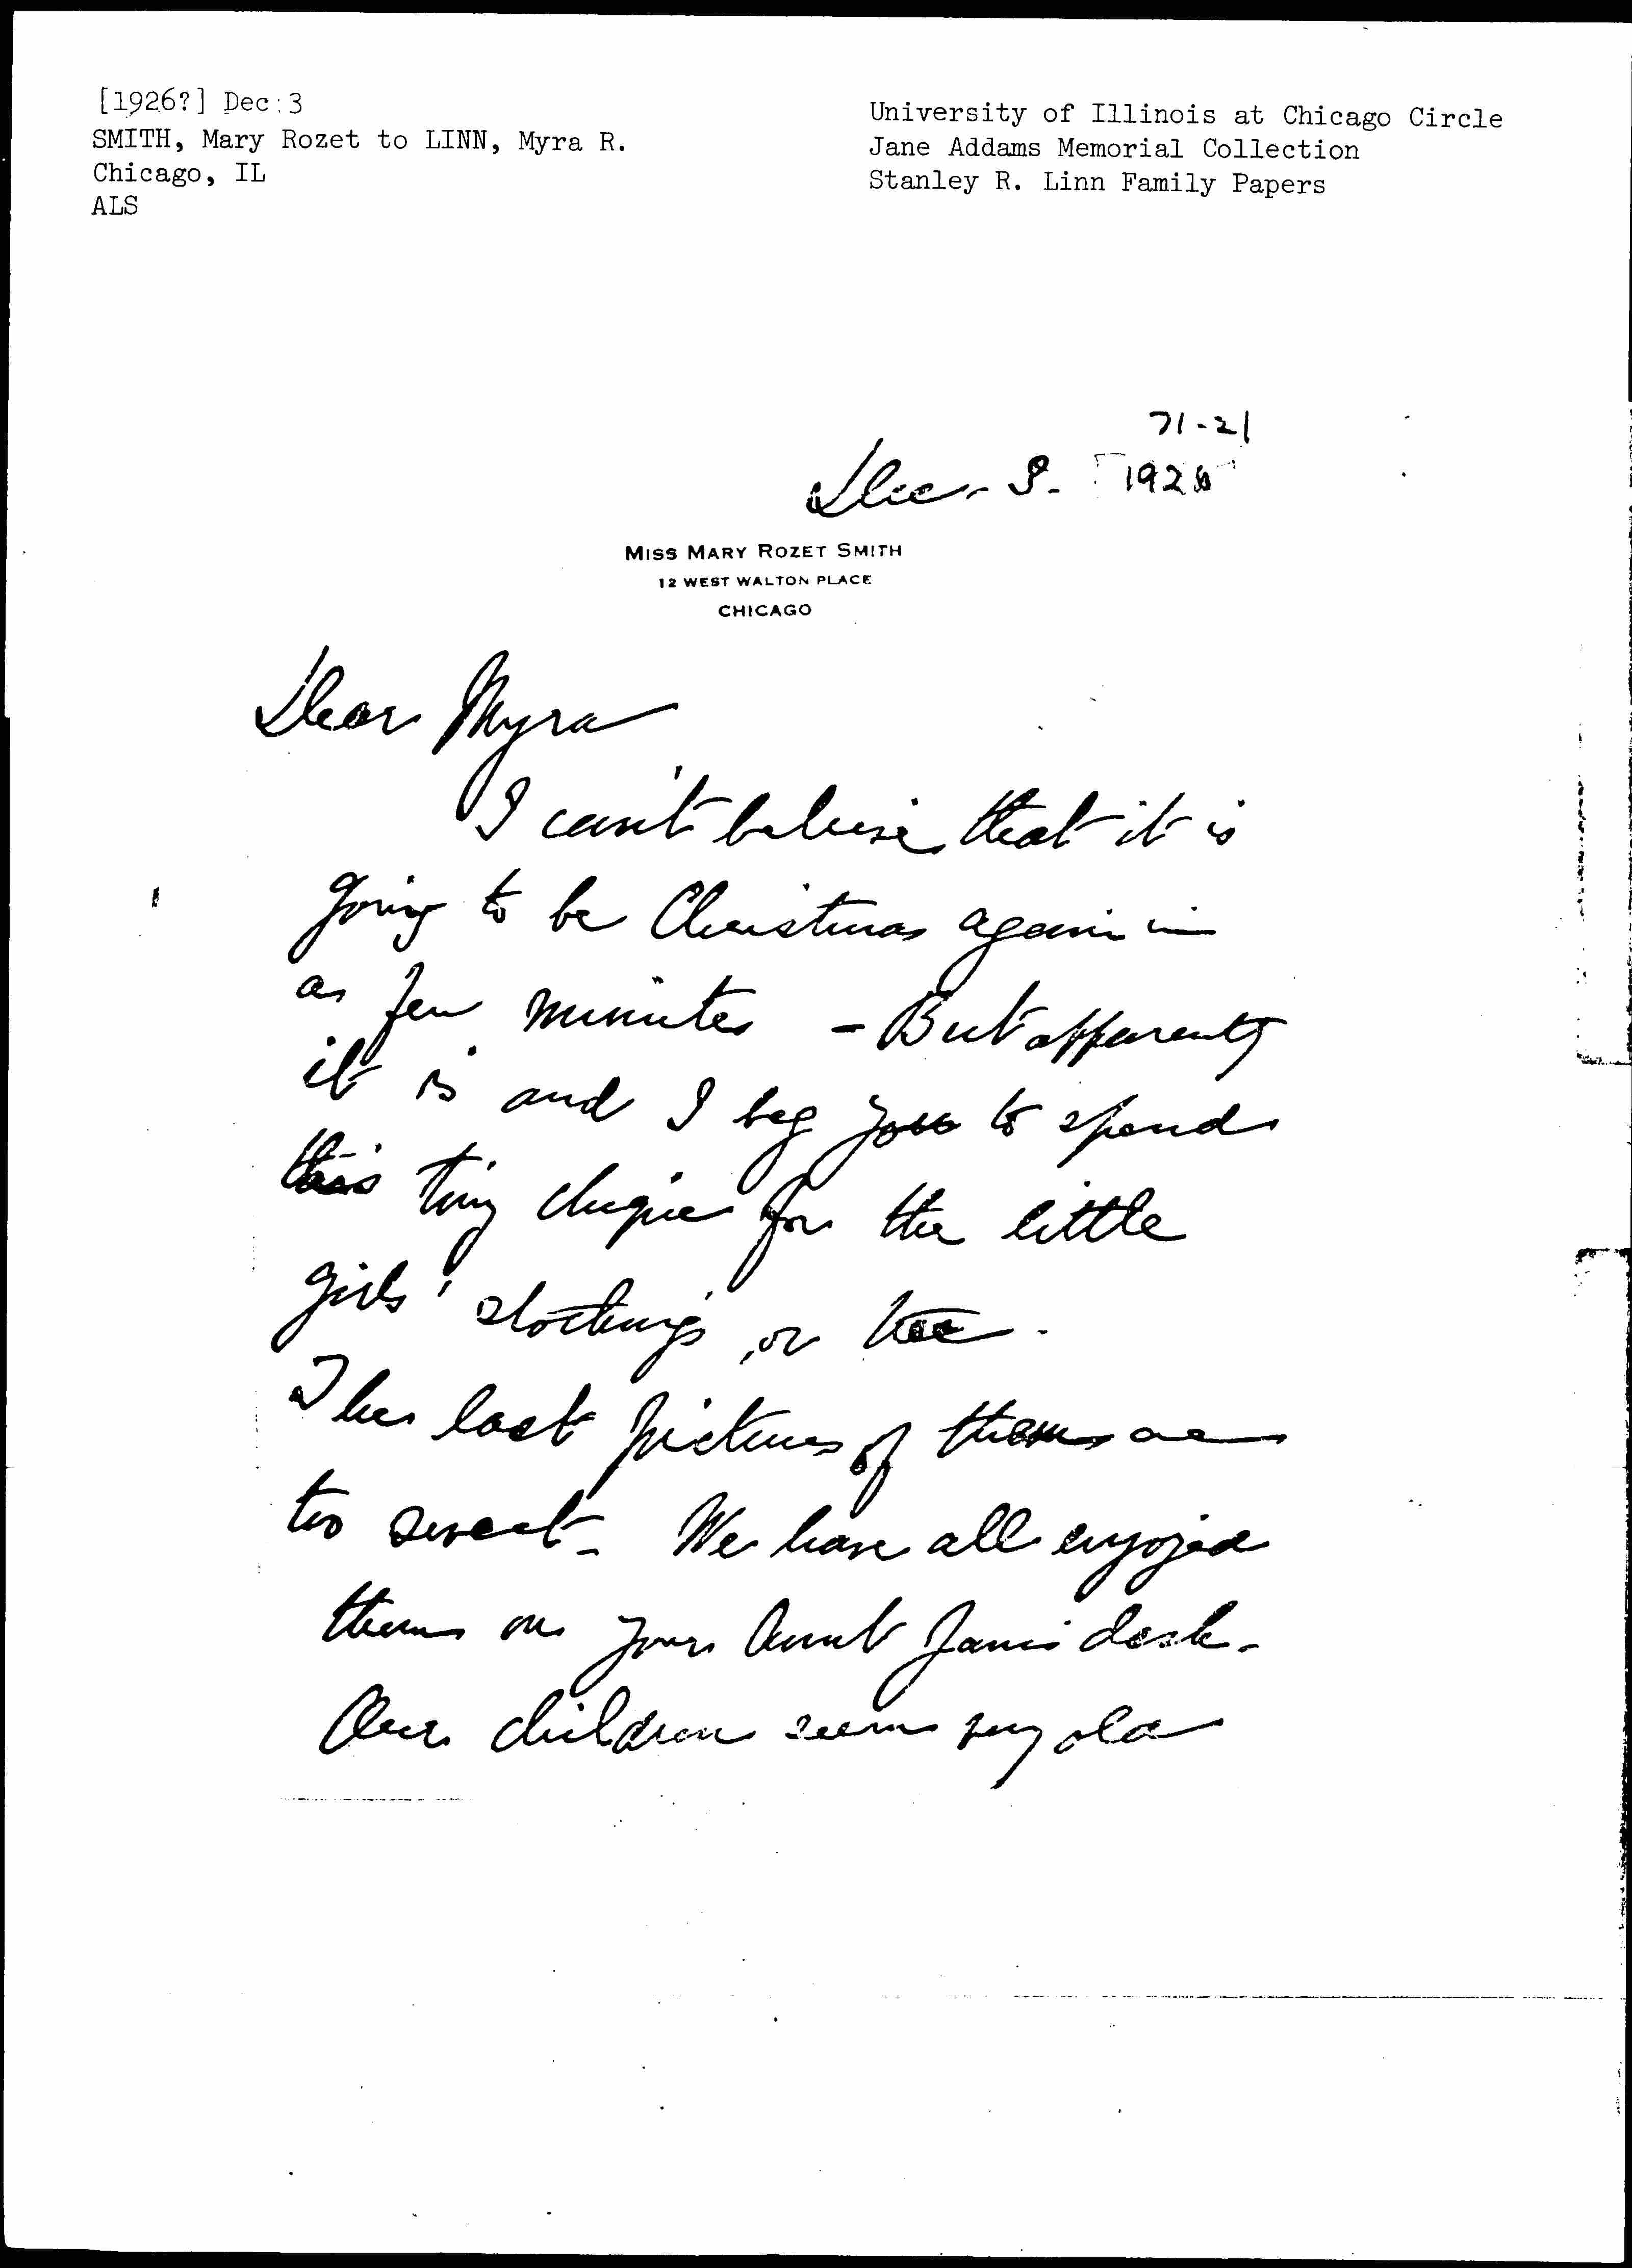 [1926?] Dec 3
SMITH, Mary Rozet to LINN, Myra R.
Chicago, IL
ALS
University of Illinois at Chicago Circle
Jane Addams Memorial Collection
Stanley R. Linn Family Papers
71-21
Dec. 3. [1926]
MISS MARY ROZET SMITH
12 WEST WALTON PLACE
CHICAGO
Dear Myra
I can't believe that it is
going to be Christmas again in
a few minutes - But apparently
it is and I beg you to spend
this tiny cheque for the little
girls' stockings, or tree.
The last pictures of them are
too sweet - We have all enjoyed
them on your Aunt Jane's desk.
Our children seem very old